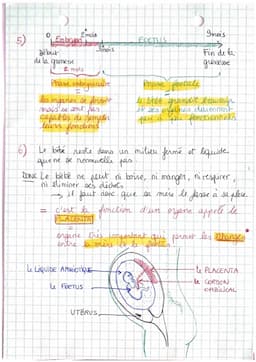 0 2mois 9mois
5) Embryon FOETUS
Début 3mois Fin de la
de la grossesse grossesse
2 mois
Phase embryonnaire Phase foetale
= =
les organes se forment le bébé grandit
mais ne sont pas et ses organes deviennent
capables de remplir
leurs fonctions
6) Le bébé reste dans un milieu fermé et liquide
qui ne se renouvelle pas.
DONC Le bébé ne peut ni boire, ni manger, ni respirer,
ni éliminer ses déchets
→ il faut donc que sa mère le fasse à sa place.
= c'est la fonction d'un organe appelé le
PLACENTA
=
organe très important qui permet les échanges
entre la mère et le foetus.
le LIQUIDE AMNIOTIQUE
le PLACENTA
le FOETUS
le CORDON
OMBILICAL
UTÉRUS